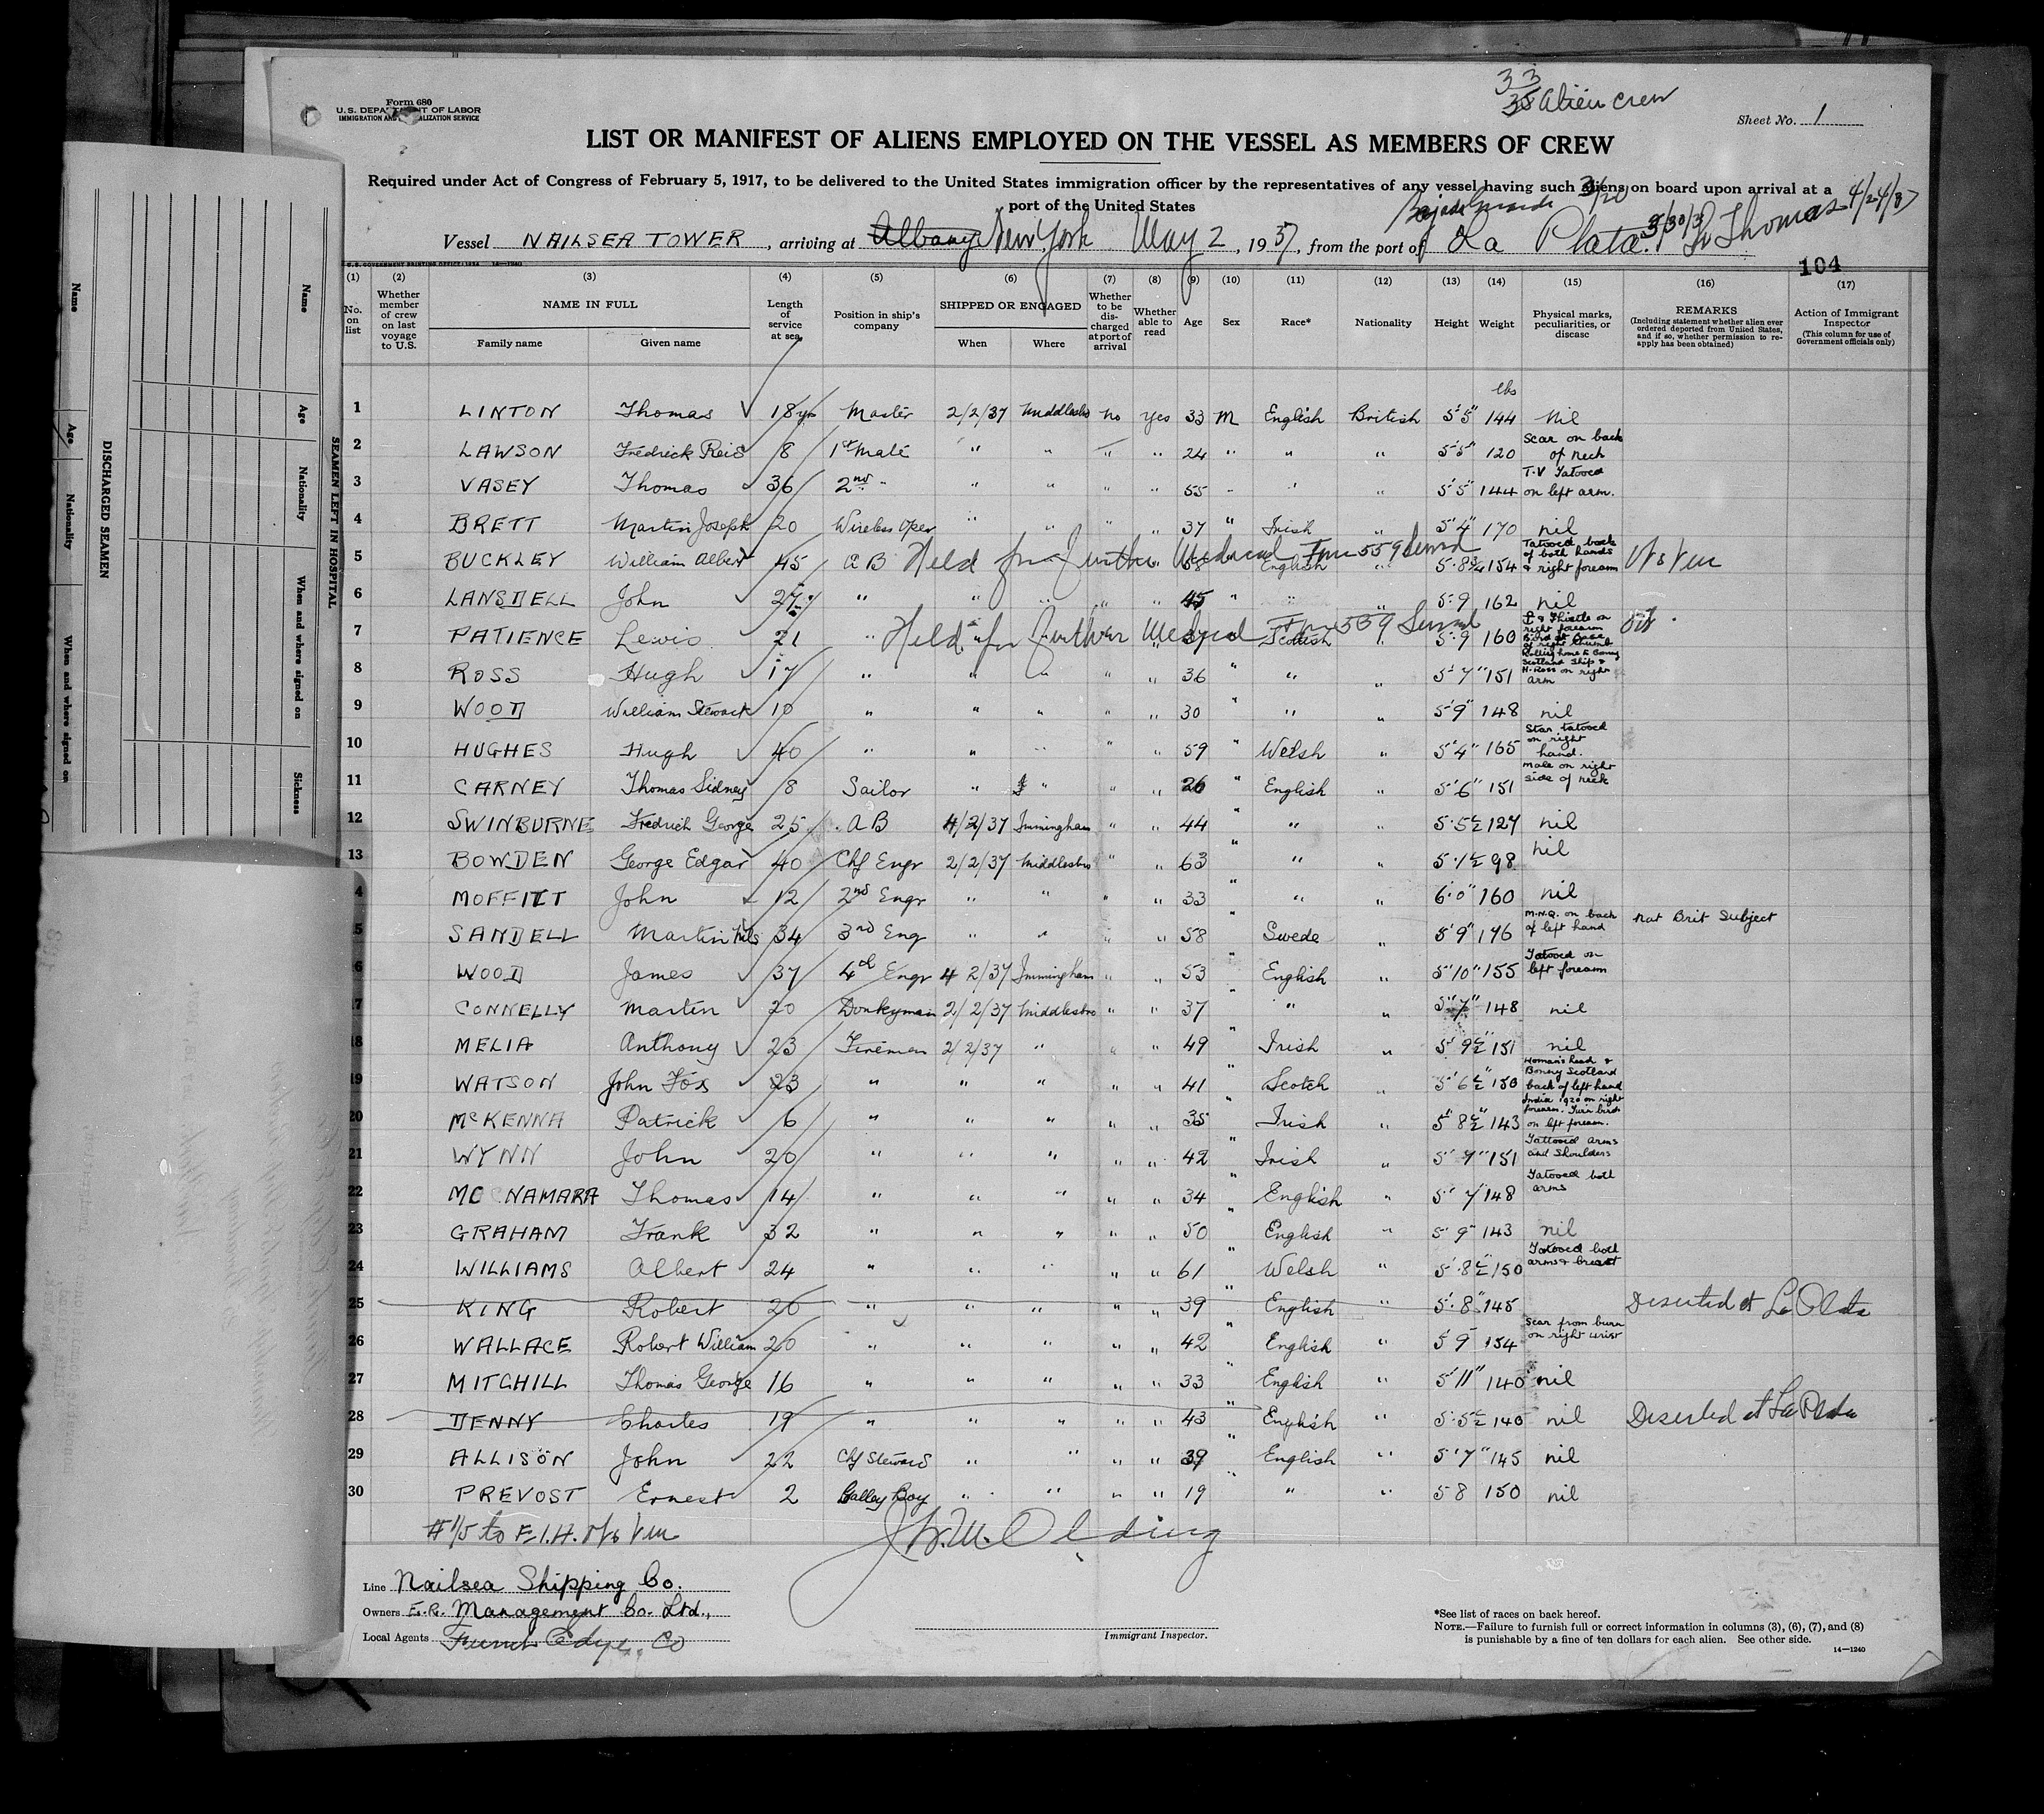 33
35 Alien crew
Form 680
U.S. DEPARTMENT OF LABOR
IMMIGRATION AND NATURALIZATION SERVICE
Sheet No. 1
LIST OR MANIFEST OF ALIENS EMPLOYED ON THE VESSEL AS MEMBERS OF CREW
Required under Act of Congress of February 5, 1917, to be delivered to the United States immigration officer by the representatives of any vessel having such aliens on board upon arrival at a
port of the United States
Vessel NAILSEA TOWER, arriving at Albany New York May 2, 1937, from the port of La Plata. St Thomas 4/24/37
U.S. GOVERNMENT PRINTING OFFICE: 1934 14—1240
104
(1) (2) (3) (4) (5) (6) (7) (8) (9) (10) (11) (12) (13) (14) (15) (16) (17)
No. on list Whether member of crew on last voyage to U.S. NAME IN FULL Family name Given name Length of service at sea Position in ship's company SHIPPED OR ENGAGED When Where Whether to be discharged at port of arrival Whether able to read Age Sex Race* Nationality Height Weight Physical marks, peculiarities, or disease REMARKS (Including statement whether alien ever ordered deported from United States, and if so, whether permission to reapply has been obtained) Action of Immigrant Inspector (This column for use of Government officials only)
lbs
1 LINTON Thomas 18 yrs Master 2/2/37 Middlesbro no yes 33 M English British 5'5" 144 Nil
2 LAWSON Fredrick Reid 8 1st Mate " " " " 24 " " " 5'5" 120 Scar on back of neck
3 VASEY Thomas 36 2nd " " " " " 55 " " " 5'5" 144 T.V Tatooed on left arm.
4 BRETT Martin Joseph 20 Wireless Oper " " " " 37 " Irish " 5'4" 170 nil
5 BUCKLEY William Albert 45 AB Held for further Medical Form 559 Served " 58 English " 5.8¾ 154 Tatooed back of both hands & right forearm
6 LANSDELL John 27 " " " " " 45 " " " 5.9 162 nil
7 PATIENCE Lewis 21 " Held for further Medical Form 559 Served " Scottish " 5.9 160 & Thistle on right forearm Bird at Base of right thumb
8 ROSS Hugh 17 " " " " " 36 " " " 5'7" 151 Rolling home to Bonny Scotland Ship & H. Ross on right arm
9 WOOD William Stewart 10 " " " " " 30 " " " 5'9" 148 nil
10 HUGHES Hugh 40 " " " " " 59 " Welsh " 5'4" 165 Star tatooed on right hand.
11 CARNEY Thomas Sidney 8 Sailor " " " " 26 " English " 5'6" 151 mole on right side of neck
12 SWINBURNE Fredrich George 25 AB 4/2/37 Immingham " " 44 " " " 5.5½ 127 nil
13 BOWDEN George Edgar 40 Chf Engr 2/2/37 Middlesbro " " 63 " " " 5.1½ 98 nil
4 MOFFITT John 12 2nd Engr " " " " 33 " " " 6.0" 160 nil
5 SANDELL Martin Nils 34 3rd Eng " " " " 58 " Swede " 5'9" 176 M.N.Q. on back of left hand not Brit Subject
6 WOOD James 37 4th Engr 4 2/37 Immingham " " 53 " English " 5'10" 155 Tatooed on left forearm
7 CONNELLY Martin 20 Donkyman 2/2/37 Middlesbro " " 37 " " " 5'7" 148 nil
18 MELIA Anthony 23 Fireman 2/2/37 " " " 49 " Irish " 5'9½" 151 nil
19 WATSON John Fox 23 " " " " " 41 " Scotch " 5'6½" 150 Woman's head & Bonny Scotland back of left hand
20 McKENNA Patrick 6 " " " " " 35 " Irish " 5'8½" 143 India 1920 on right forearm. Twin birds on left forearm.
21 WYNN John 20 " " " " " 42 " Irish " 5'7" 151 Tattooed arms and shoulders
22 MCNAMARA Thomas 14 " " " " " 34 " English " 5'7" 148 Tatooed both arms
23 GRAHAM Frank 32 " " " " " 50 " English " 5'9" 143 nil
24 WILLIAMS Albert 24 " " " " " 61 " Welsh " 5'8½ 150 Tatooed both arms & breast
25 KING Robert 20 " " " " " 39 " English " 5'.8" 145 Deserted at La Plata
26 WALLACE Robert William 20 " " " " " 42 " English " 5'9" 154 Scar from burn on right wrist
27 MITCHILL Thomas George 16 " " " " " 33 " English " 5'11" 140 nil
28 DENNY Charles 19 " " " " " 43 " English " 5.5½ 140 nil Deserted at La Plata
29 ALLISON John 22 Chf Steward " " " " 39 " English " 5'7" 145 nil
30 PREVOST Ernest 2 Galley Boy " " " " 19 " " " 5 8 150 nil
#1/5 to E.I.H.
Line Nailsea Shipping Co.
Owners E.R. Management Co. Ltd.,
Local Agents Edye, Co
Immigrant Inspector.
*See list of races on back hereof.
NOTE.—Failure to furnish full or correct information in columns (3), (6), (7), and (8)
is punishable by a fine of ten dollars for each alien. See other side.
14—1240
DISCHARGED SEAMEN
Name Age Nationality When and where signed on
SEAMEN LEFT IN HOSPITAL
Name Age Nationality When and where signed on Sickness